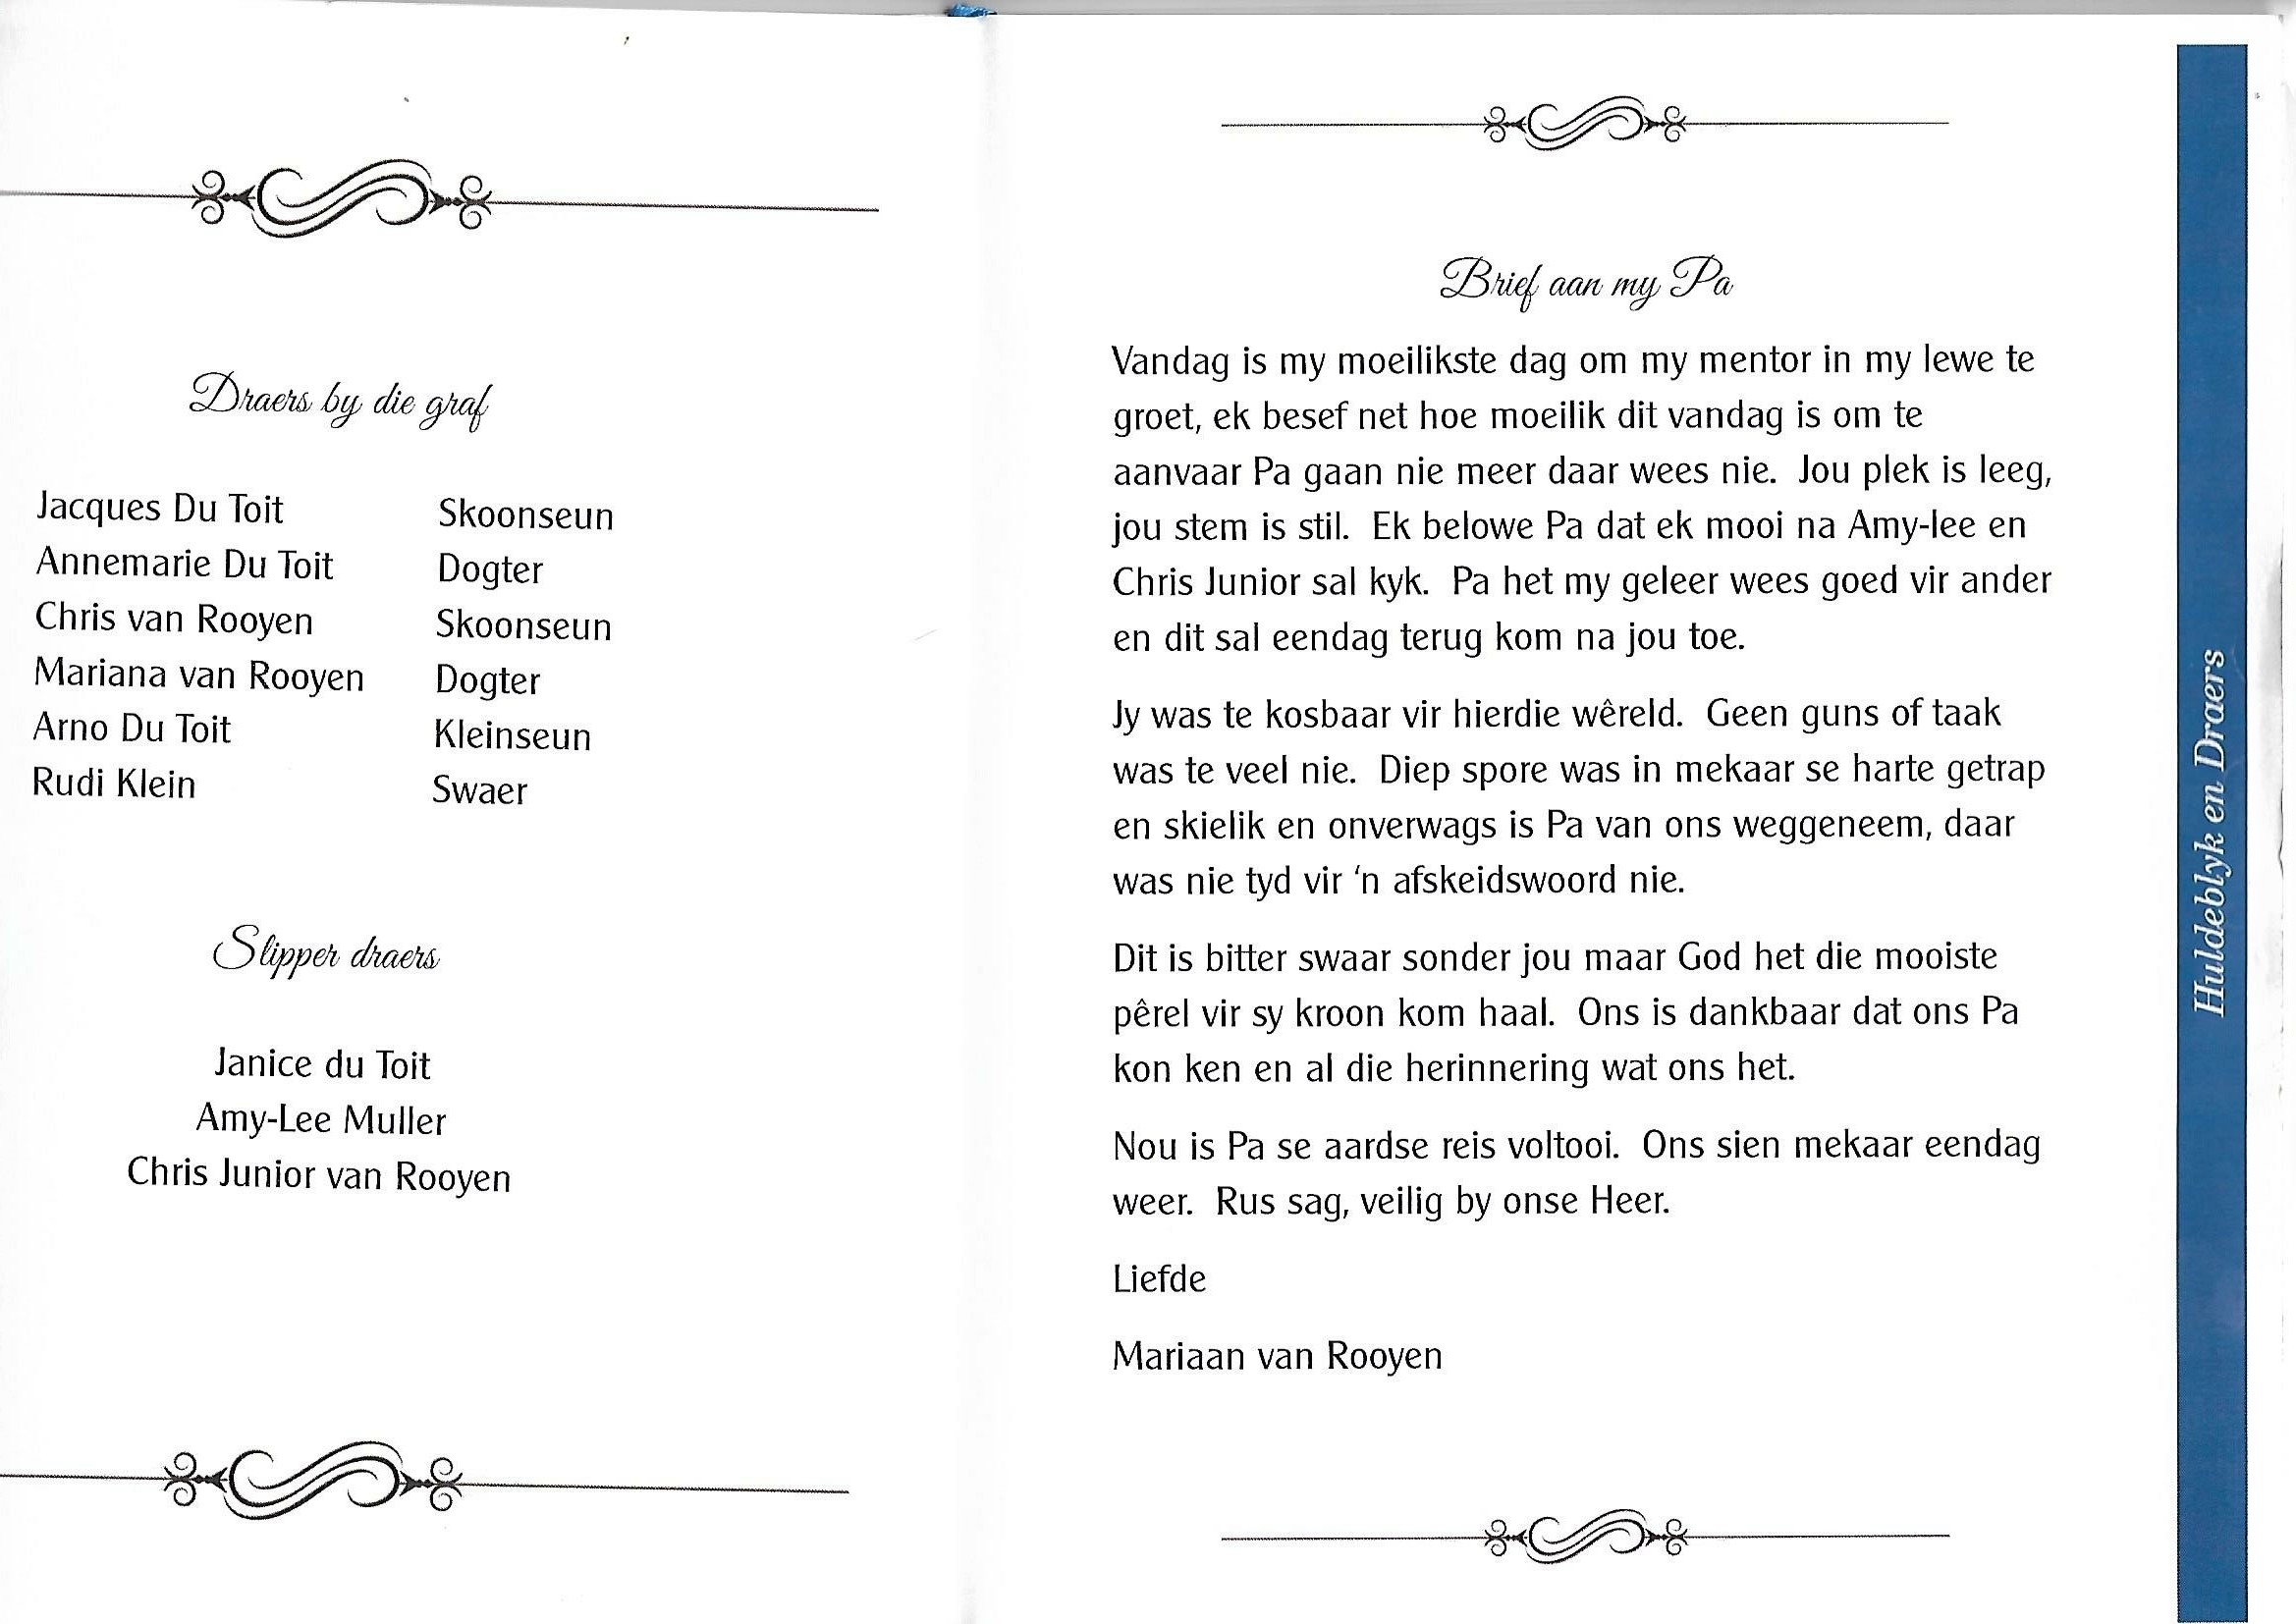 Draers by die graf
Jacques Du Toit Skoonseun
Annemarie Du Toit Dogter
Chris van Rooyen Skoonseun
Mariana van Rooyen Dogter
Arno Du Toit Kleinseun
Rudi Klein Swaer
Slipper draers
Janice du Toit
Amy-Lee Muller
Chris Junior van Rooyen
Brief aan my Pa
Vandag is my moeilikste dag om my mentor in my lewe te
groet, ek besef net hoe moeilik dit vandag is om te
aanvaar Pa gaan nie meer daar wees nie. Jou plek is leeg,
jou stem is stil. Ek belowe Pa dat ek mooi na Amy-lee en
Chris Junior sal kyk. Pa het my geleer wees goed vir ander
en dit sal eendag terug kom na jou toe.
Jy was te kosbaar vir hierdie wêreld. Geen guns of taak
was te veel nie. Diep spore was in mekaar se harte getrap
en skielik en onverwags is Pa van ons weggeneem, daar
was nie tyd vir ‘n afskeidswoord nie.
Dit is bitter swaar sonder jou maar God het die mooiste
pêrel vir sy kroon kom haal. Ons is dankbaar dat ons Pa
kon ken en al die herinnering wat ons het.
Nou is Pa se aardse reis voltooi. Ons sien mekaar eendag
weer. Rus sag, veilig by onse Heer.
Liefde
Mariaan van Rooyen
Huldeblyk en Draers